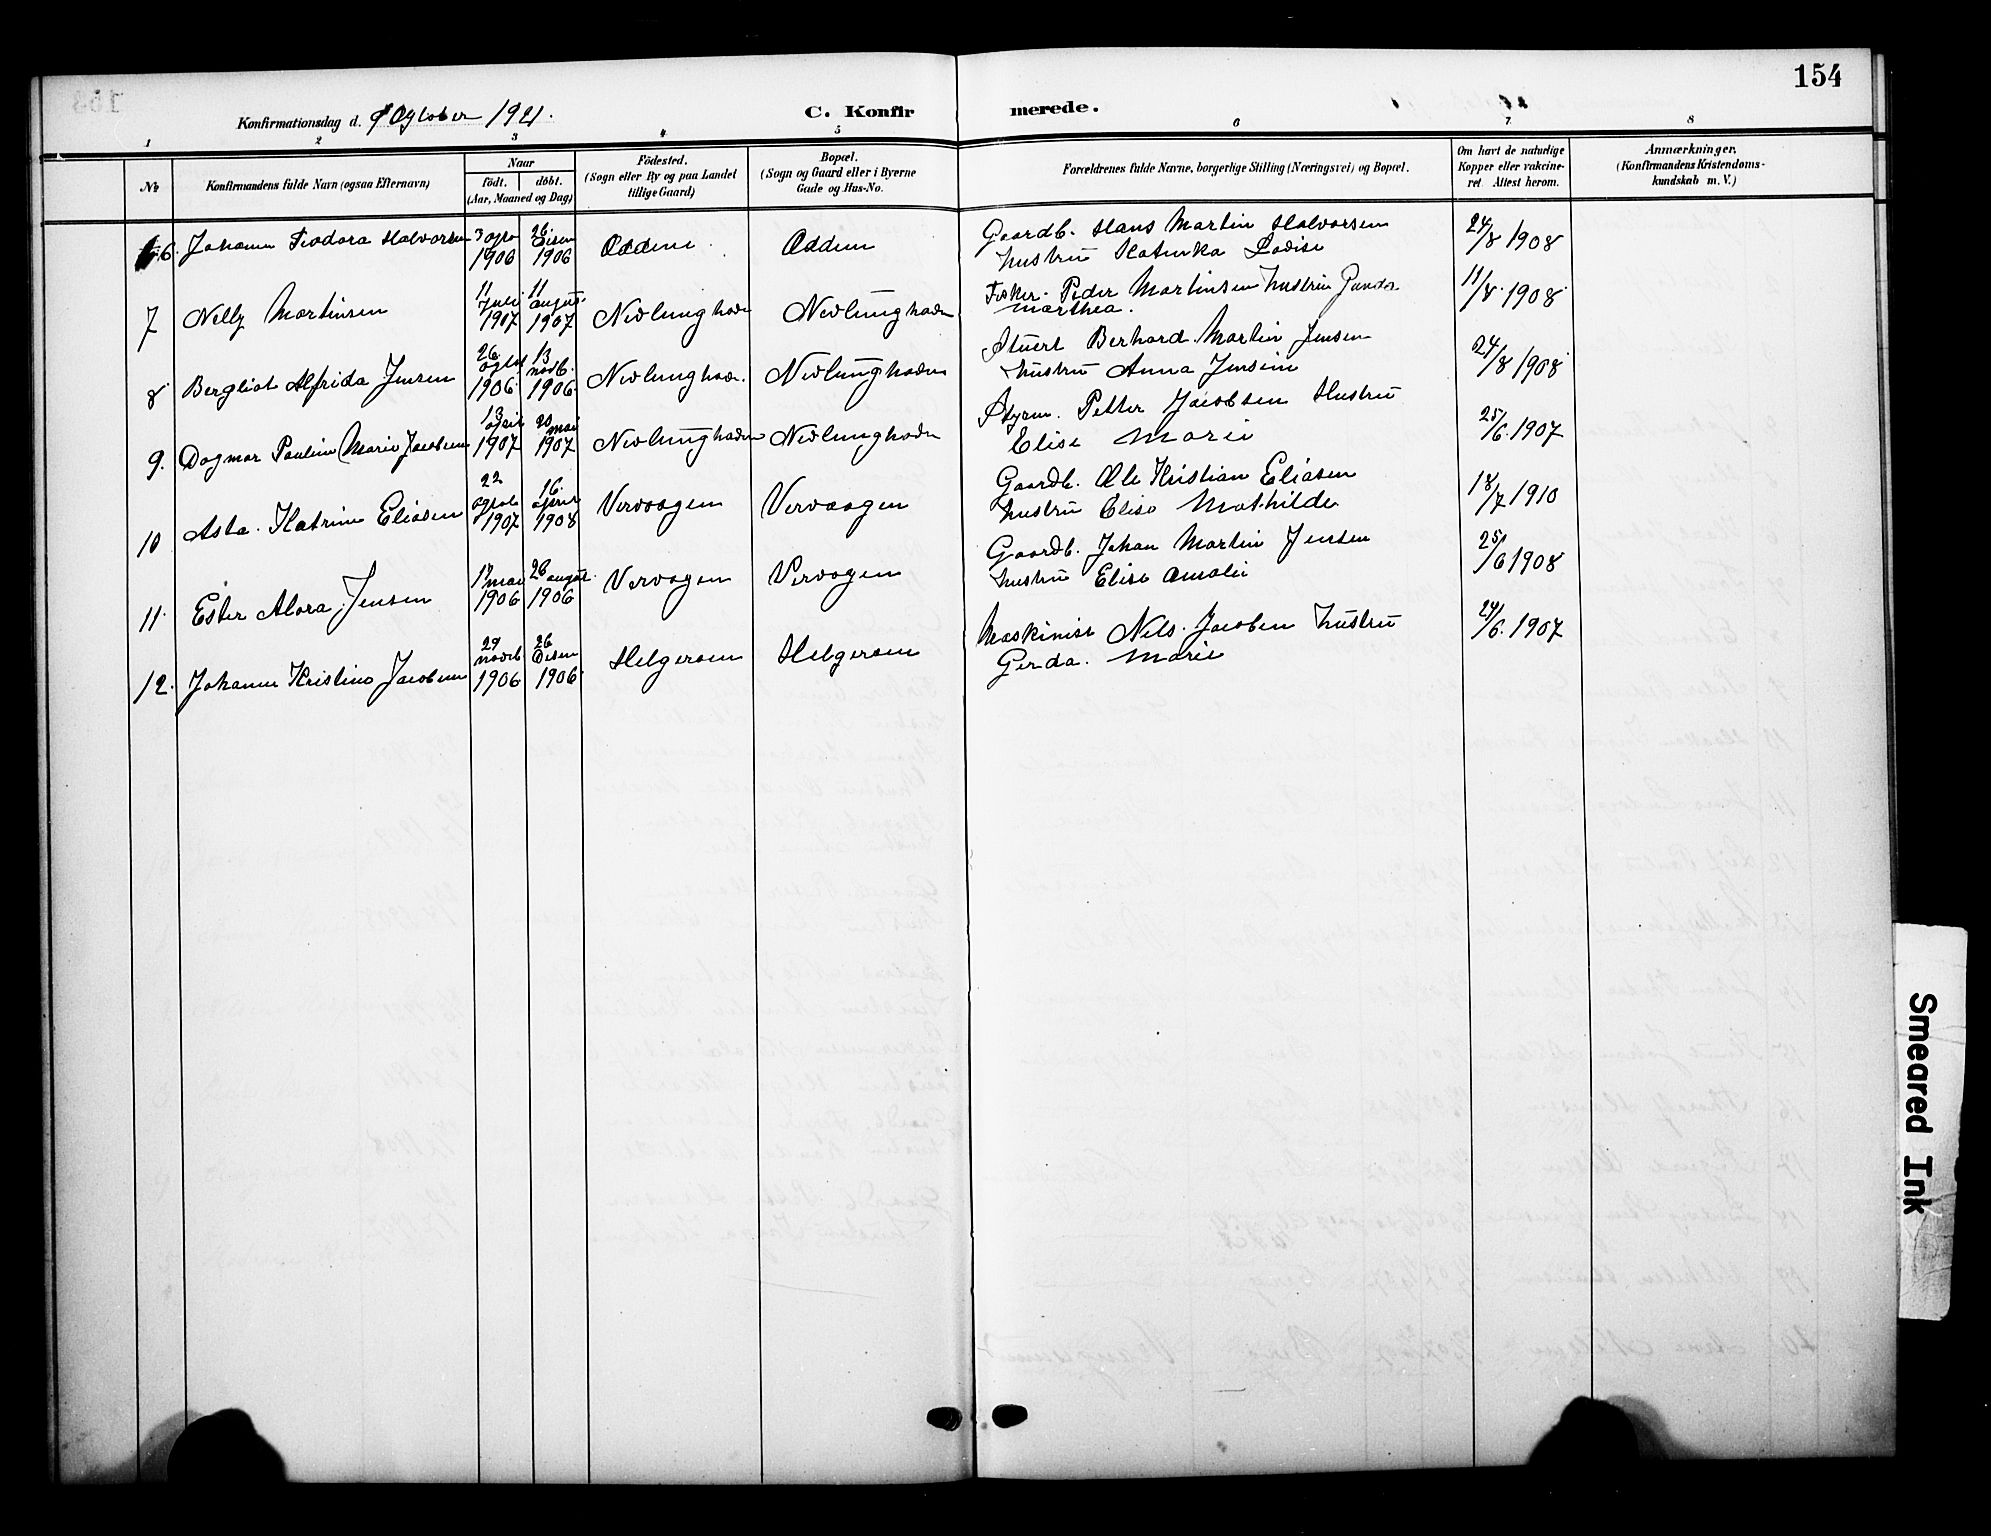 154
Konfirmationsdag d. 9 Ogtober 1921.
C. Konfirmerede.
1 2 3 4 5 6 7 8
No
Konfirmandens fulde Navn (ogsaa Efternavn)
Naar
födt. döbt.
(Aar, Maaned og Dag)
Födested.
(Sogn eller By og paa Landet
tillige Gaard)
Bopæl.
(Sogn og Gaard eller i Byerne
Gade og Hus-No.
Forældrenes fulde Navne, borgerlige Stilling (Næringsvei) og Bopæl.
Om havt de naturlige
Kopper eller vakcine-
ret. Attest herom.
Anmærkninger.
(Konfirmandens Kristendoms-
kundskab m. V.)
6. Johanne Teodora Halvorsen 3 1906 26 1906 Oddene Oddene Gaardb. Hans Martin Halvorsen 24/8 1908
hustru Katinka Lovise
7 Nelly Martinsen 11 Juli 1907 11 august 1907 Nevlunghavn Nevlunghavn Fisker. Peder Martinsen hustru 11/8 1908
Marthea.
8 Bergliot Alfrida Jensen 26 1906 13 novb. 1906 Nevlunghavn. Nevlunghavn Stuert Berhard Martin Jensen 24/8 1908
hustru Anna Jensine
9. Dagmar Pauline Marie Jacobsen 13 1907 20 mai 1907 Nevlunghavn Nevlunghavn Styrm. Petter Jacobsen Hustru 25/6. 1907
Elise Marie
10 Asta. Katrine Eliasen 22 1907 16. april 1908 Vervaagen Vervaagen Gaardb. Ole Kristian Eliasen 18/7 1910
hustru Elise Mathilde
11. Ester Alora Jensen mai 1906 26 august. 1906 Vervagen Vervagen Gaardb. Johan Martin Jensen 25/6 1908
hustru Elise Amalie
12. Johanne Kristine Jacobsen 29 noveb 1906 26 1906 Helgeroen Helgeroen Maskinist Nils. Jacobsen hustru 24/6. 1907
Gerda. Marie
Smeared Ink